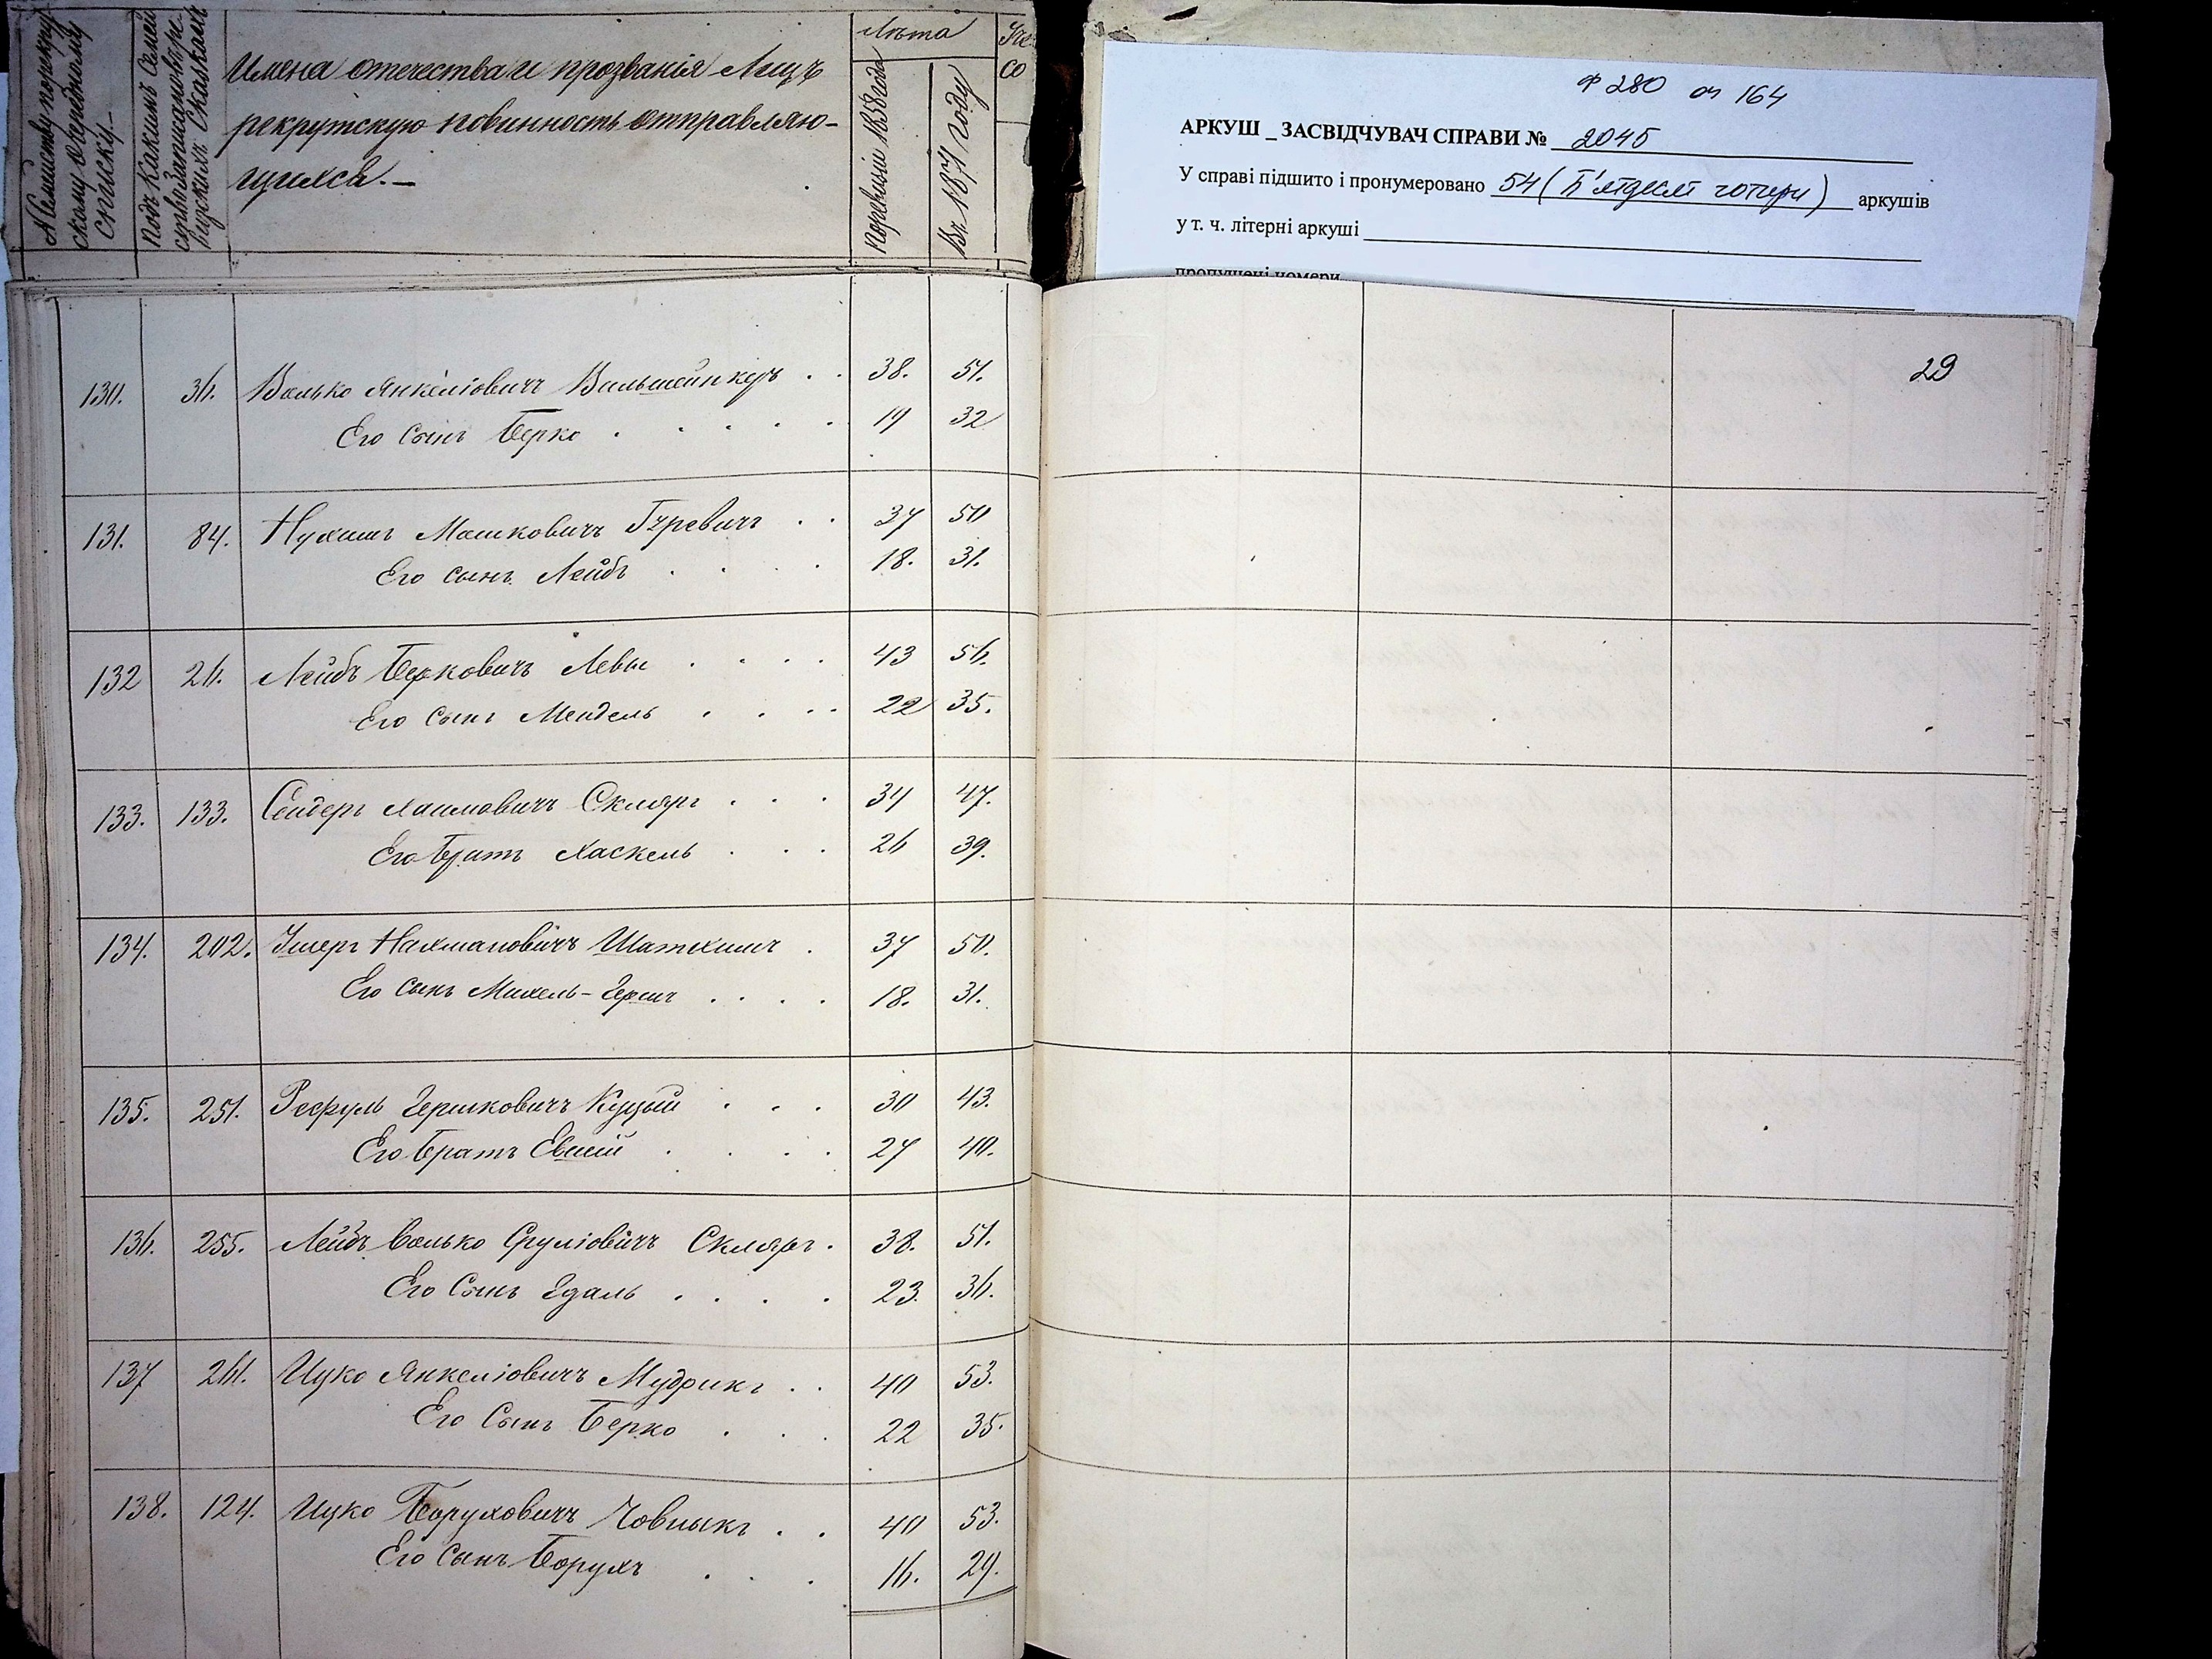 № Семейству по рекрут
скому очередному
списку.-
Подъ Какимъ Семей
Ревизскихъ Сказкахъ
Имена отечества и прозванія Лицъ
рекрутскую повинность отправляю-
щихся.-
Лѣта
По ревизіи 1858 года
Въ 1871 году
со
130. 36. Волько Янкеліовичъ Вильшейнкеръ . . 38. 51.
Его Сынъ Берко . . . . . 19 32
131. 84. Нухимъ Мошковичъ Гуревичъ . . 37 50
Его сынъ Лейбъ . . . . 18. 31.
132 26. Лейбъ Берковичъ Левы . . . . 43 56.
Его Сынъ Мендель . . . . 22 35.
133. 133. Сендеръ Хаимовичъ Скляръ . . . 34 47.
Его Братъ Хаскель . . . 26 39.
134. 202. Ушеръ Нахмановичъ Шатхинъ . 37 50.
Его сынъ Михель-Гершъ . . . . 18. 31.
135. 251. Рефуль Гершковичъ Куцый . . . 30 43.
Его Братъ Евсей . . . . 27 40.
136. 255. Лейбъ Волько Сруліовичъ Скляръ . 38. 51.
Его Сынъ Гдаль . . . . 23. 36.
137 261. Ицко Янкеліовичъ Мудрикъ . . 40 53.
Его Сынъ Берко . . . 22 35.
138. 124. Ицко Боруховичъ Човныкъ . . 40 53.
Его Сынъ Борухъ . . . 16. 29.
ф 280 оп 164
АРКУШ _ ЗАСВІДЧУВАЧ СПРАВИ № 2045
У справі підшито і пронумеровано 54 (П'ятдесят чотири) аркушів
у т. ч. літерні аркуші
пропущені номери
29